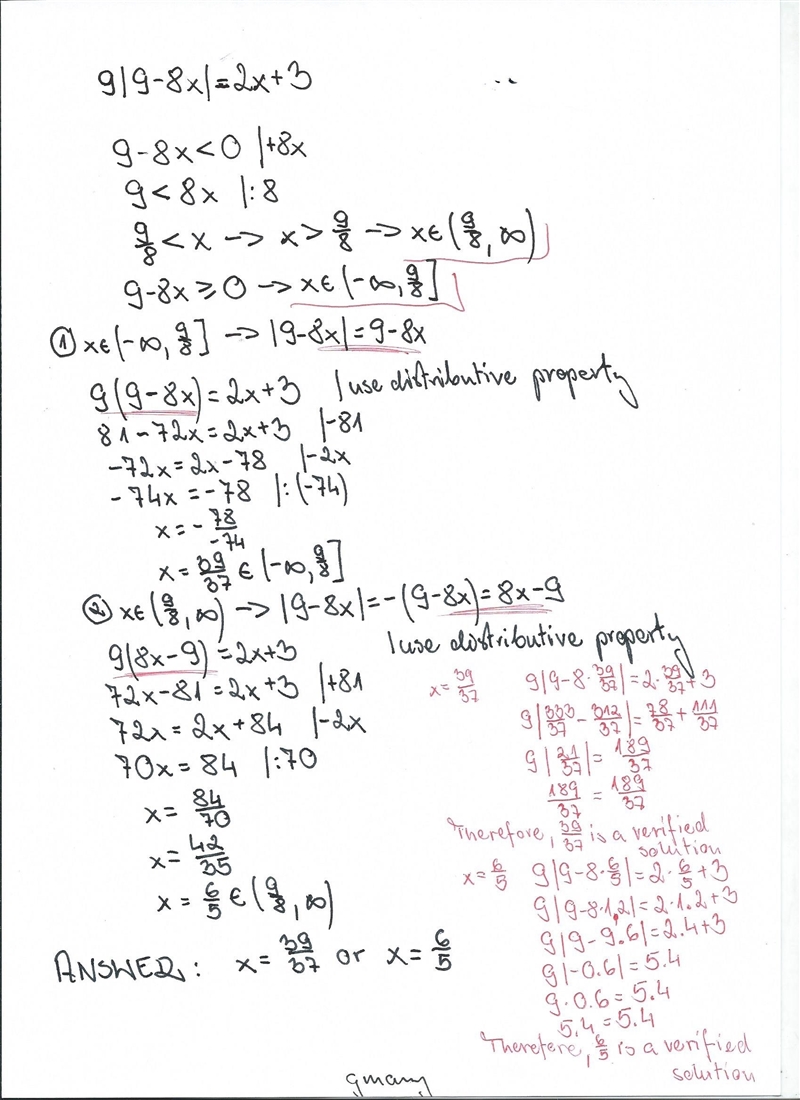 9|9-8x|=2x+3
9-8x<0 |+8x
9<8x |:8
9/8<x → x>9/8 → x∈(9/8, ∞)
9-8x≥0 → x∈(-∞, 9/8]
① x∈(-∞, 9/8] → |9-8x|=9-8x
9(9-8x)=2x+3 | use distributive property
81-72x=2x+3 |-81
-72x=2x-78 |-2x
-74x=-78 |:(-74)
x=-78/-74
x=39/37 ∈(-∞, 9/8]
② x∈(9/8, ∞) → |9-8x|=-(9-8x)=8x-9
9(8x-9)=2x+3 | use distributive property
72x-81=2x+3 |+81
72x=2x+84 |-2x
70x=84 |:70
x=84/70
x=42/35
x=6/5 ∈(9/8, ∞)
ANSWER: x=39/37 or x=6/5
x=39/37 9|9-8·39/37|=2·39/37+3
9|333/37-312/37|=78/37+111/37
9|21/37|=189/37
189/37=189/37
Therefore, 39/37 is a verified
solution
x=6/5 9|9-8·6/5|=2·6/5+3
9|9-8·1.2|=2·1.2+3
9|9-9.6|=2.4+3
9|-0.6|=5.4
9·0.6=5.4
5.4=5.4
Therefore, 6/5 is a verified
solution
gmany